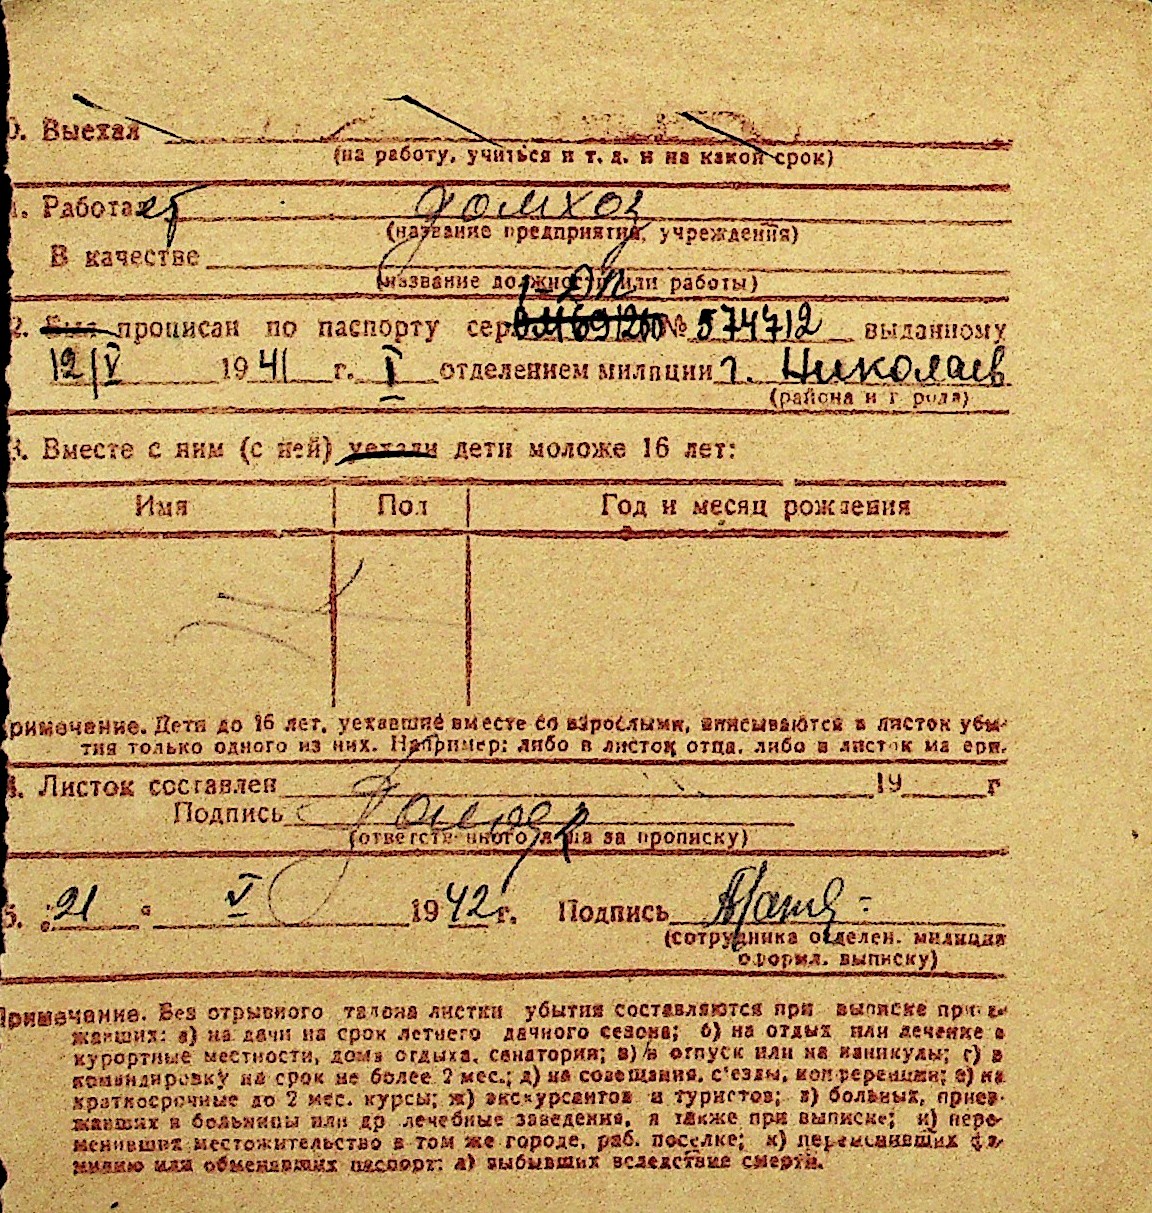 0. Выехал
(на работу, учиться и т. д. и на какой срок)
1. Работает домхоз
(название предприятия, учреждения)
В качестве
(название должности или работы)
2. Был прописан по паспорту сер. № 574712 выданному
12/V 1941 г. I отделением милиции г. Николаев
(района и города)
3. Вместе с ним (с ней) уехали дети моложе 16 лет:
Имя Пол Год и месяц рождения
римечание. Дети до 16 лет, уехавшие вместе со взрослыми, вписываются в листок убы-
тия только одного из них. Например: либо в листок отца, либо в листок матери.
4. Листок составлен 19 г
Подпись
(ответственного лица за прописку)
5. 21 V 1942 г. Подпись
(сотрудника отделен. милиции
оформ. выписку)
Примечание. Без отрывного талона листки убытия составляются при выписке приез-
жавших: а) на дачи на срок летнего дачного сезона; б) на отдых или лечение в
курортные местности, дома отдыха, санатории; в) в отпуск или на каникулы; г) в
командировку на срок не более 2 мес.; д) на совещания, с'езды, конференции; е) на
краткосрочные до 2 мес. курсы; ж) экскурсантов и туристов; з) больных, приез-
жавших в больницы или др лечебные заведения, а также при выписке; и) пере-
менивших местожительство в том же городе, раб. поселке; к) переменивших фа-
милию или обменявших паспорт: л) выбывших вследствие смерти.